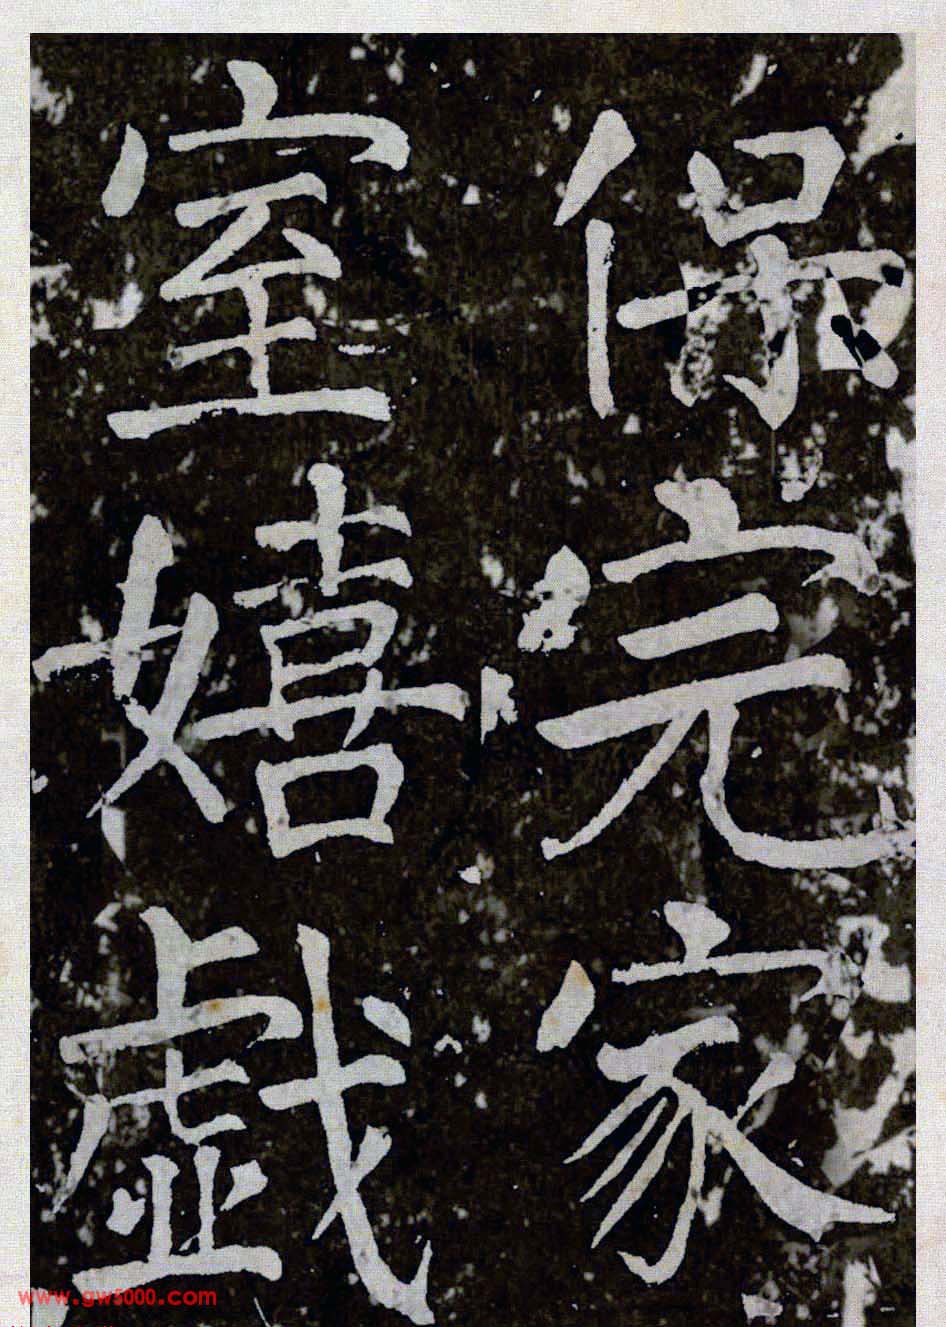 保完家
室嬉戱
www.gw5000.com